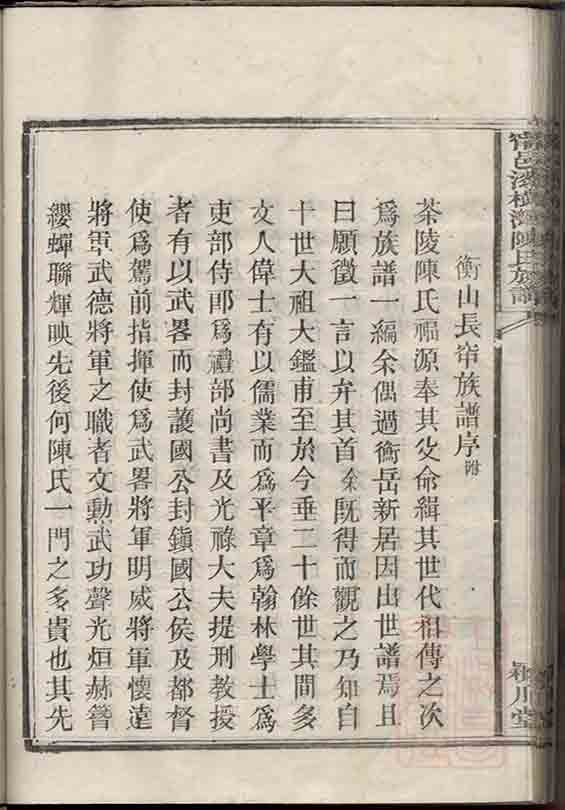 甯邑淥𣗋潭陳氏族譜
衡山長甯族譜序附
茶陵陳氏福源奉其父命緝其世代相傳之次
爲族譜一編余偶過衡岳新居因出世譜焉且
曰願徵一言以弁其首余既得而觀之乃知自
十世大祖大鑑甫至於今垂二十餘世其間多
文人偉士有以儒業而爲平章爲翰林學士爲
吏部侍郎爲禮部尚書及光祿大夫提刑教授
者有以武畧而封護國公封鎮國公侯及都督
使爲駕前指揮使爲武畧將軍明威將軍懷遠
將軍武德將軍之職者文勳武功聲光烜赫簪
纓蟬聯輝映先後何陳氏一門之多貴也其先
潁川堂